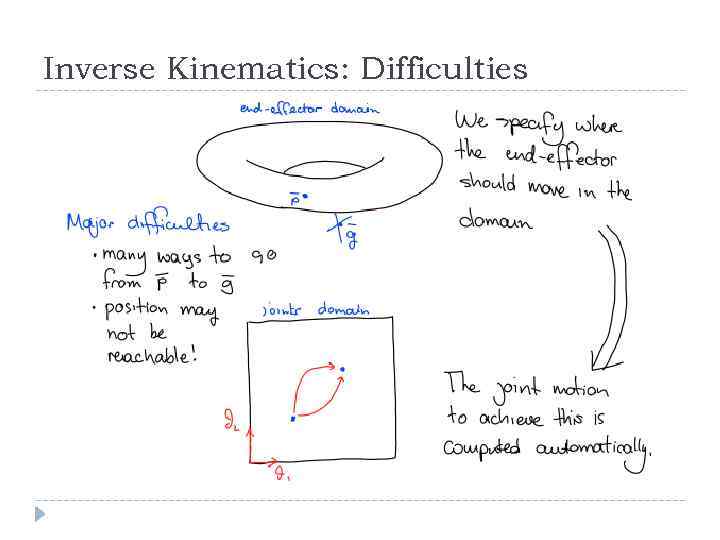 Inverse Kinematics: Difficulties
end-effector domain
We specify where
the end-effector
should move in the
domain
p̄
ḡ
Major difficulties
· many ways to go
from p̄ to ḡ
· position may
not be
reachable!
joints domain
ϑ₂
ϑ₁
The joint motion
to achieve this is
computed automatically.